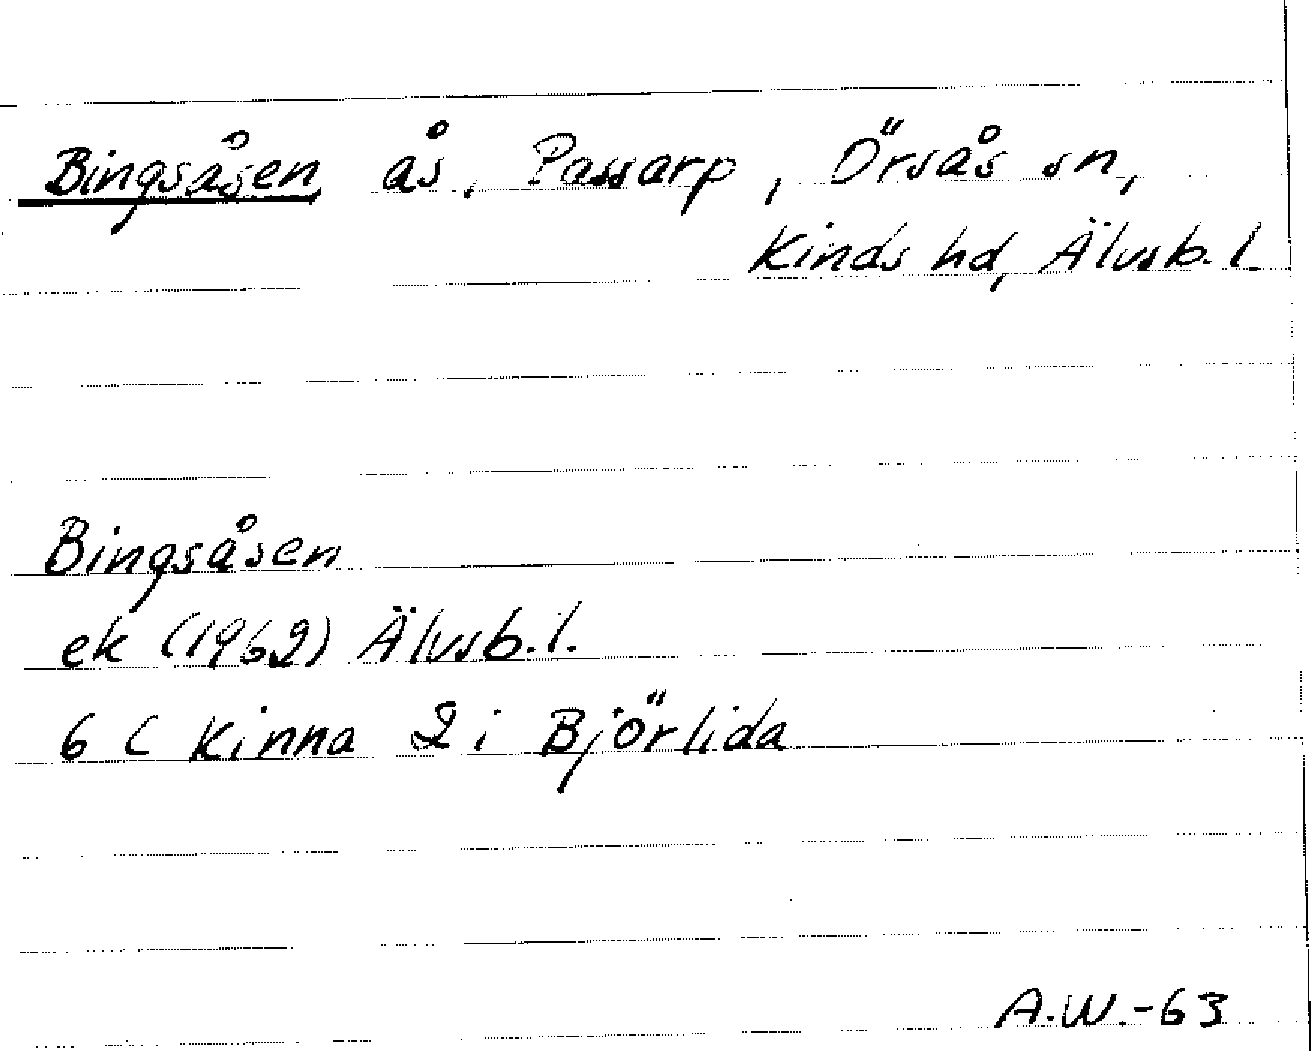 Bingsåsen, ås, Passarp, Örsås sn,
Kinds hd, Älvsb. l.
Bingsåsen
ek (1962) Älvsb. l.
6 C Kinna 2 i Björlida
A.W.-63